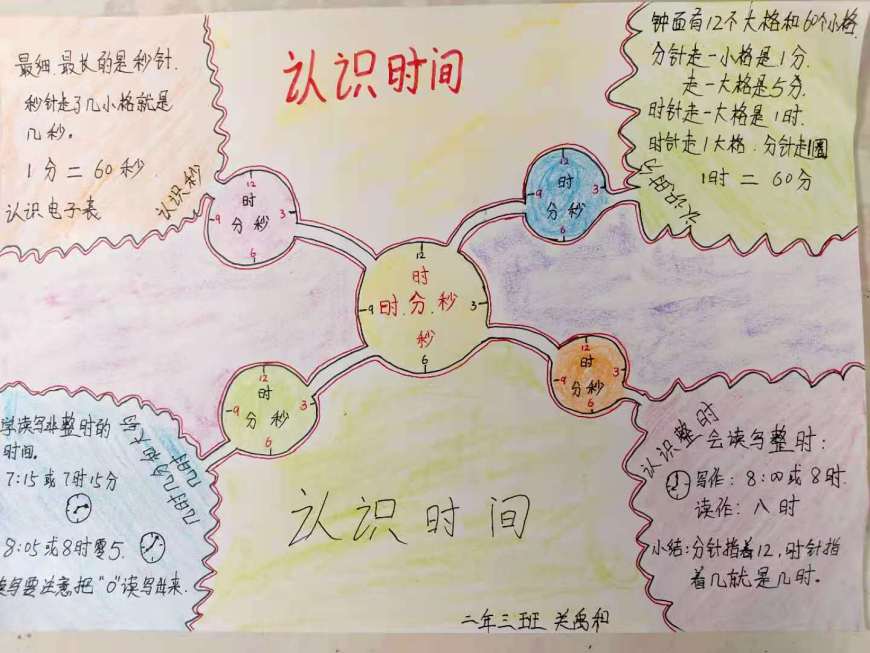 认识时间
最细.最长的是秒针.
秒针走了几小格就是
几秒。
1分=60秒
认识电子表
认识秒
12
时
9 分 秒 3
6
钟面有12个大格和60个小格.
分针走一小格是1分.
走一大格是5分.
时针走一大格是1时.
时针走1大格.分针走1圈
1时=60分
认识时分
12
时
9 分 秒 3
6
12
时
9 时.分.秒 3
秒
6
12
时
9 分 秒 3
6
12
时
9 分 秒 3
6
学读写非整时的
时间。
7:15或7时15分
8:05或8时零5.
读写要注意把“0”读写出来.
几时几分
认识整时
会读写整时:
写作:8:00或8时.
读作:八时
小结:分针指着12,时针指
着几就是几时。
认识时间
二年三班 关禹和